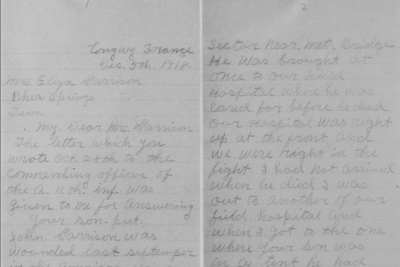 1
Longwy France
Dec. 5th 1918.
Mrs Eliza Garrison
Rhea Springs
Tenn.
My Dear Mrs Garrison
The letter which you
wrote Oct 20th to the
Commanding officer of
the inf. was
given to me for answering
Your son pvt.
John Garrison was
wounded last september
in the
2
Sector near Met. Bridge
He was brought at
once to our field
Hospital where he was
cared for before he died
Our Hospital was right
up at the front and
we were right in the
fight I had not arrived
when he died I was
out to another of our
field hospital and
when I got to the one
where your son was
he had